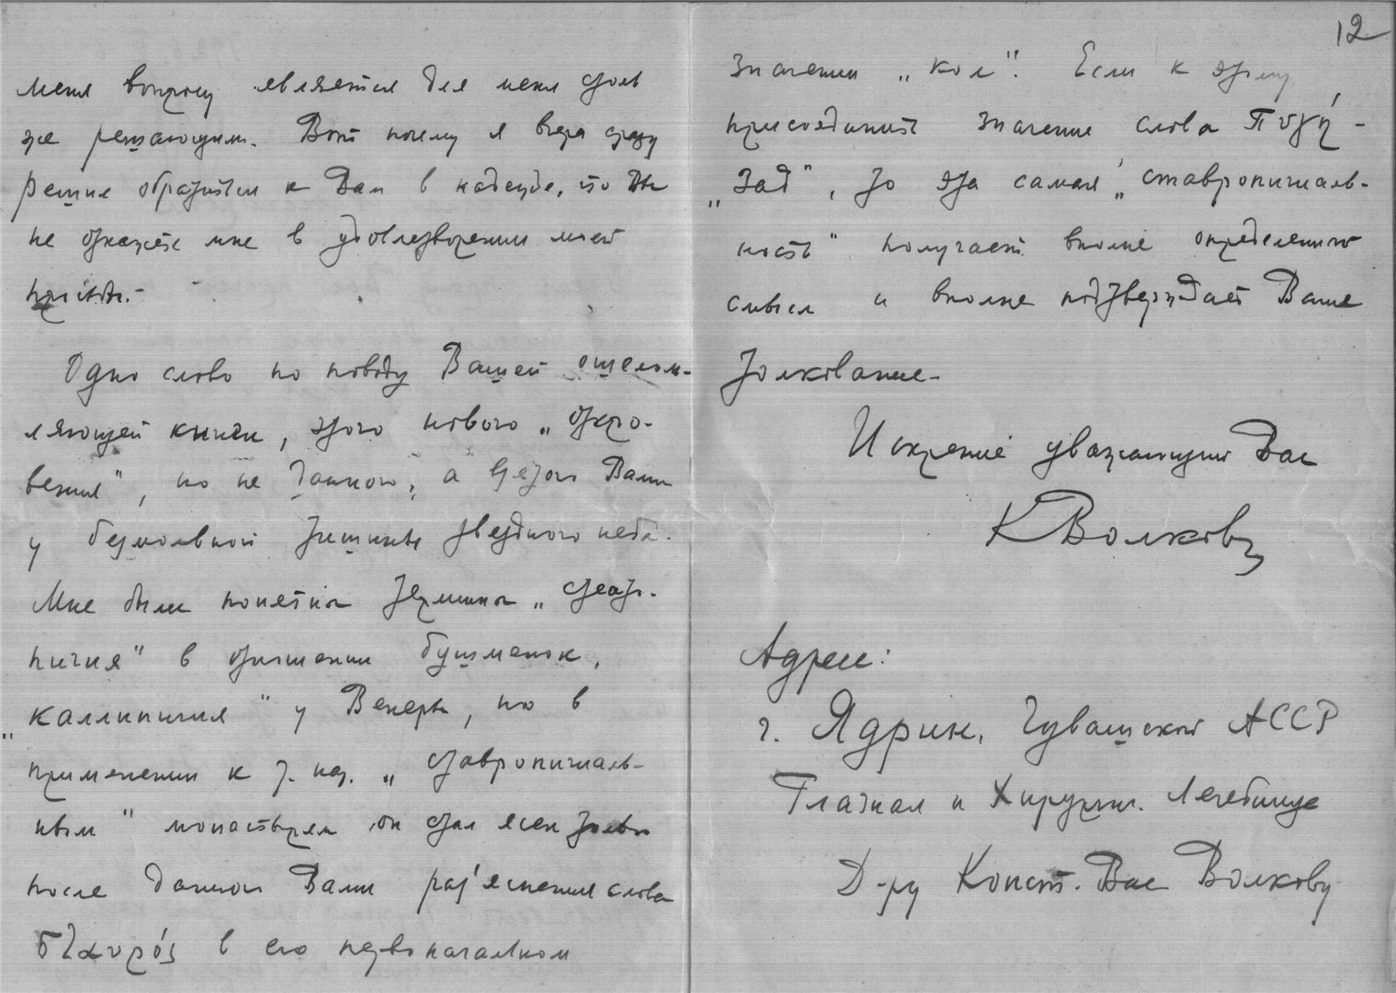 меня вопросу является для меня столь
же решающим. Вот почему я вчера сразу
решил обратиться к Вам в надежде, что Вы
не откажете мне в удовлетворении моей
просьбы.-
Одно слово по поводу Вашей ошелом-
ляющей книги, этого нового „откро-
вения", но не данного, а взятого Вами
у безмолвной тишины звездного неба.
Мне были понятны термины „стеато-
пигия" в отношении бушменок,
„каллипигия" у Венеры, но в
применении к т. наз. „ставропигиаль-
ным" монастырям он стал ясен только
после данного Вами раз'яснения слова
σταυρός в его первоначальном
12
значении „кол". Если к этому
присоединить значение слова πυγή -
„зад", то эта самая „ставропигиаль-
ность" получает вполне определенный
смысл и вполне подтверждает Ваше
толкование.
Искренне уважающий Вас
К Волковъ
Адрес:
г. Ядрин, Чувашской АССР
Глазная и Хирургич. Лечебница
Д-ру Конст. Вас Волкову